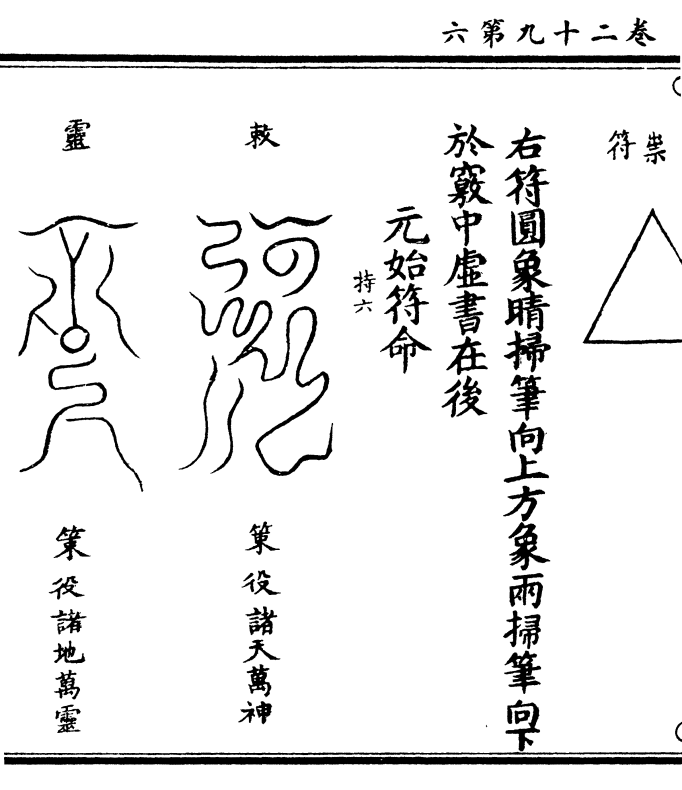 卷二十九第六
禜符
右符圓象晴掃筆向上方象雨掃筆向下
於竅中虛書在後
元始符命
持六
敕
策役諸天萬神
靈
策役諸地萬靈